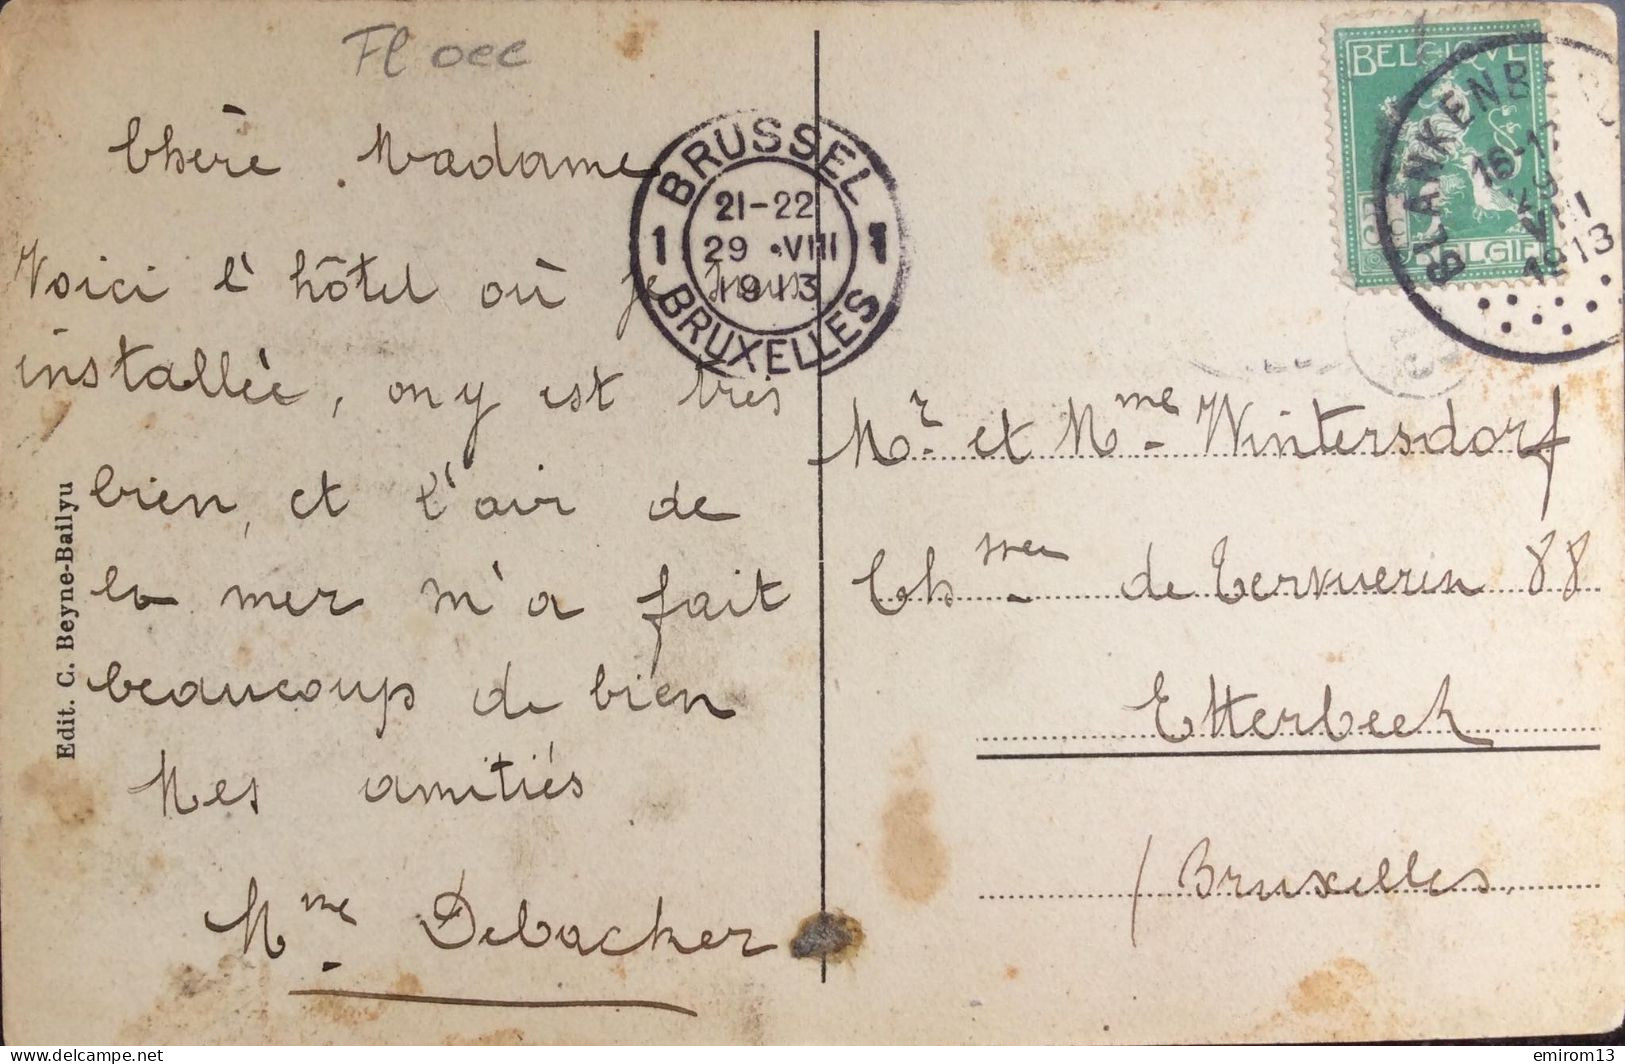 Fl occ
Chère Madame
Voici l'hôtel où je suis
installée, on y est très
bien, et l'air de
la mer m'a fait
beaucoup de bien
Mes amitiés
Mme Debacker
Edit. C. Beyne-Bailyu
BRUSSEL
1 21-22 1
29 VIII
1913
BRUXELLES
BELGIQUE
BELGIË
BLANKENB
16-1
29
VIII
1913
Mr et Mme Wintersdorf
Chsée de Tervueren 88
Etterbeek
/ Bruxelles.
delcampe.net
emirom13